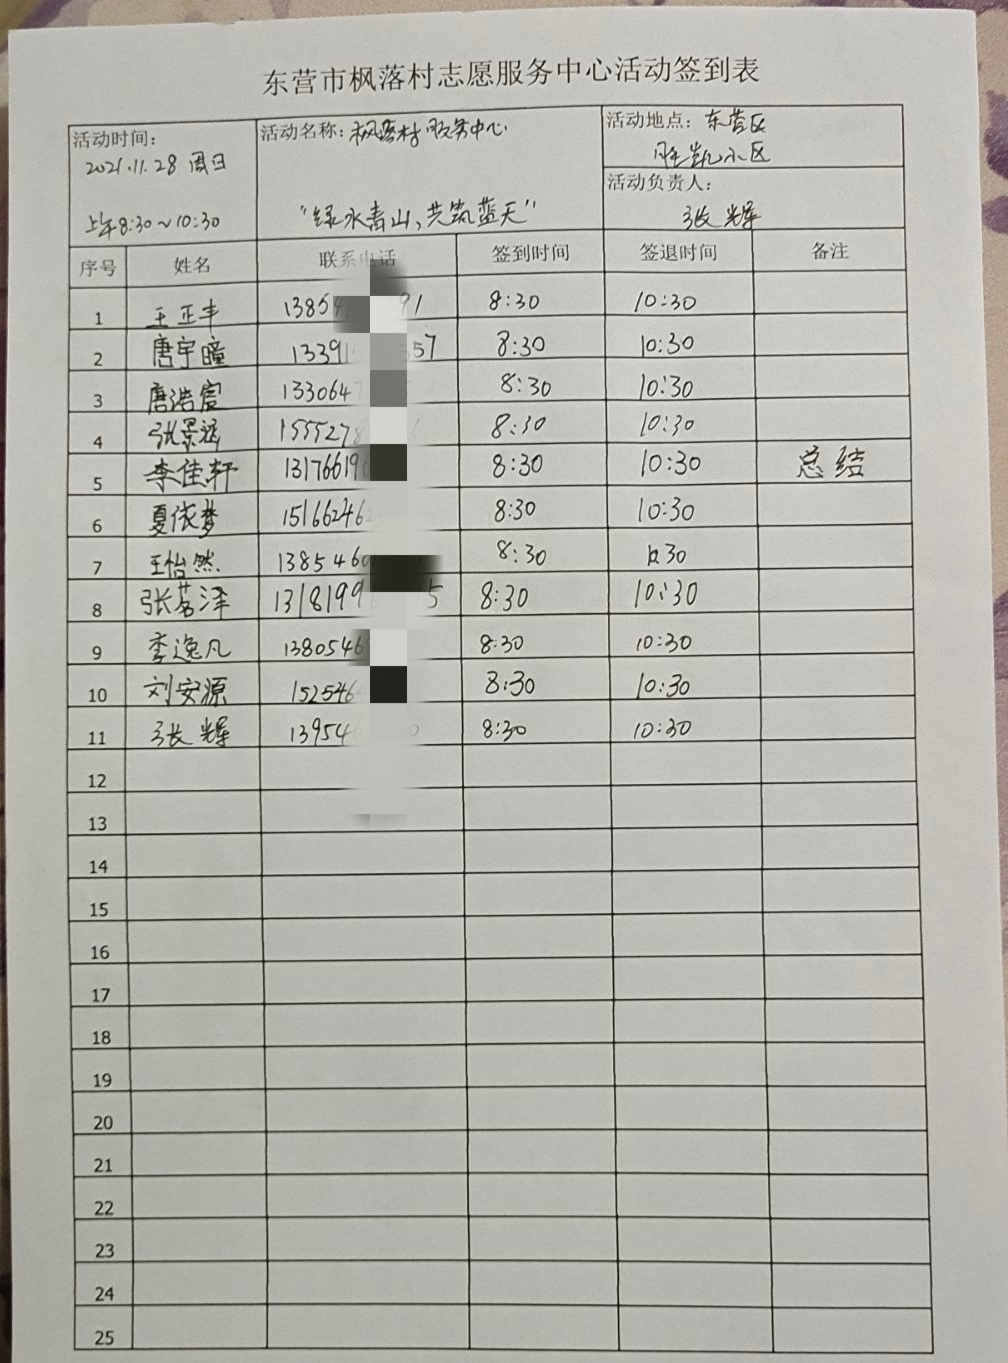 东营市枫落村志愿服务中心活动签到表
活动时间： 活动名称：枫落村服务中心 活动地点：东营区
2021.11.28 周日 胜凯小区
活动负责人：
上午8:30~10:30 "绿水青山,共筑蓝天" 张辉
序号 姓名 联系电话 签到时间 签退时间 备注
1 王正丰 1385 91 8:30 10:30
2 唐宇曈 13391 557 8:30 10:30
3 唐浩宸 1330647 8:30 10:30
4 张景 155527 8:30 10:30
5 李佳轩 13176619 8:30 10:30 总结
6 夏依梦 15166246 8:30 10:30
7 王怡然 1385460 8:30 10:30
8 张茗泽 1318199 5 8:30 10:30
9 李逸凡 1380546 8:30 10:30
10 刘安源 152546 8:30 10:30
11 张辉 13954 0 8:30 10:30
12
13
14
15
16
17
18
19
20
21
22
23
24
25